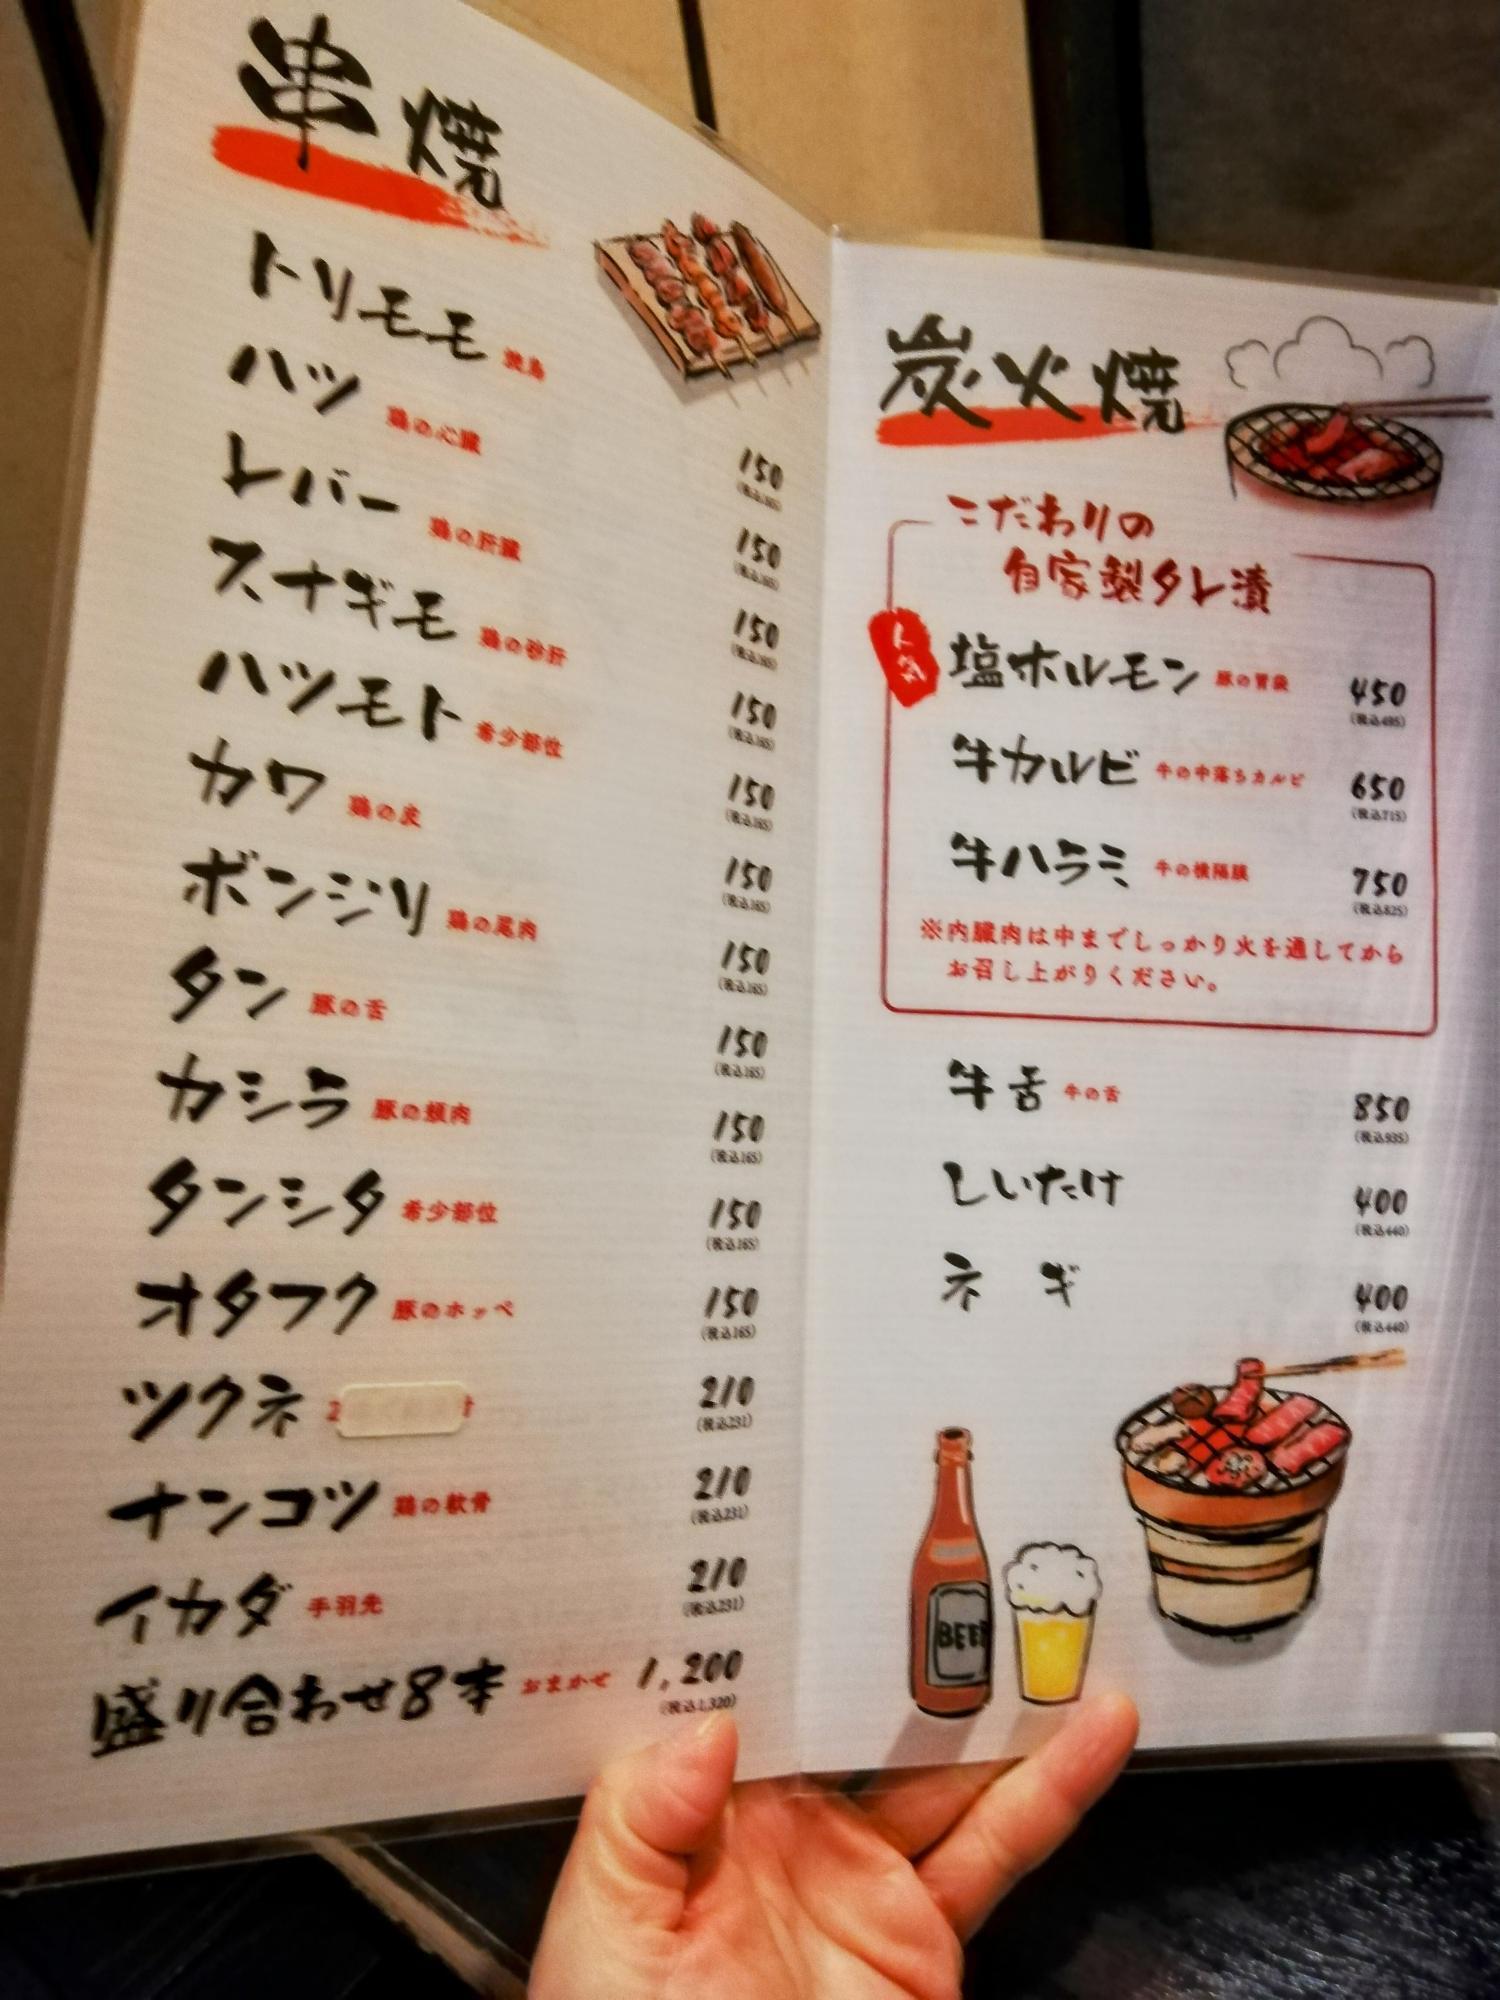 串焼
トリモモ 焼鳥 150
(税込165)
ハツ 鶏の心臓 150
(税込165)
レバー 鶏の肝臓 150
(税込165)
スナギモ 鶏の砂肝 150
(税込165)
ハツモト 希少部位 150
(税込165)
カワ 鶏の皮 150
(税込165)
ボンジリ 鶏の尾肉 150
(税込165)
タン 豚の舌 150
(税込165)
カシラ 豚の頬肉 150
(税込165)
タンシタ 希少部位 150
(税込165)
オタフク 豚のホッペ 150
(税込165)
ツクネ 210
(税込231)
ナンコツ 鶏の軟骨 210
(税込231)
イカダ 手羽先 210
(税込231)
盛り合わせ8本 おまかせ 1,200
(税込1,320)
炭火焼
こだわりの
自家製タレ漬
人気
塩ホルモン 豚の胃袋 450
(税込495)
牛カルビ 牛の中落ちカルビ 650
(税込715)
牛ハラミ 牛の横隔膜 750
(税込825)
※内臓肉は中までしっかり火を通してから
お召し上がりください。
牛舌 牛の舌 850
(税込935)
しいたけ 400
(税込440)
ネギ 400
(税込440)
BEER